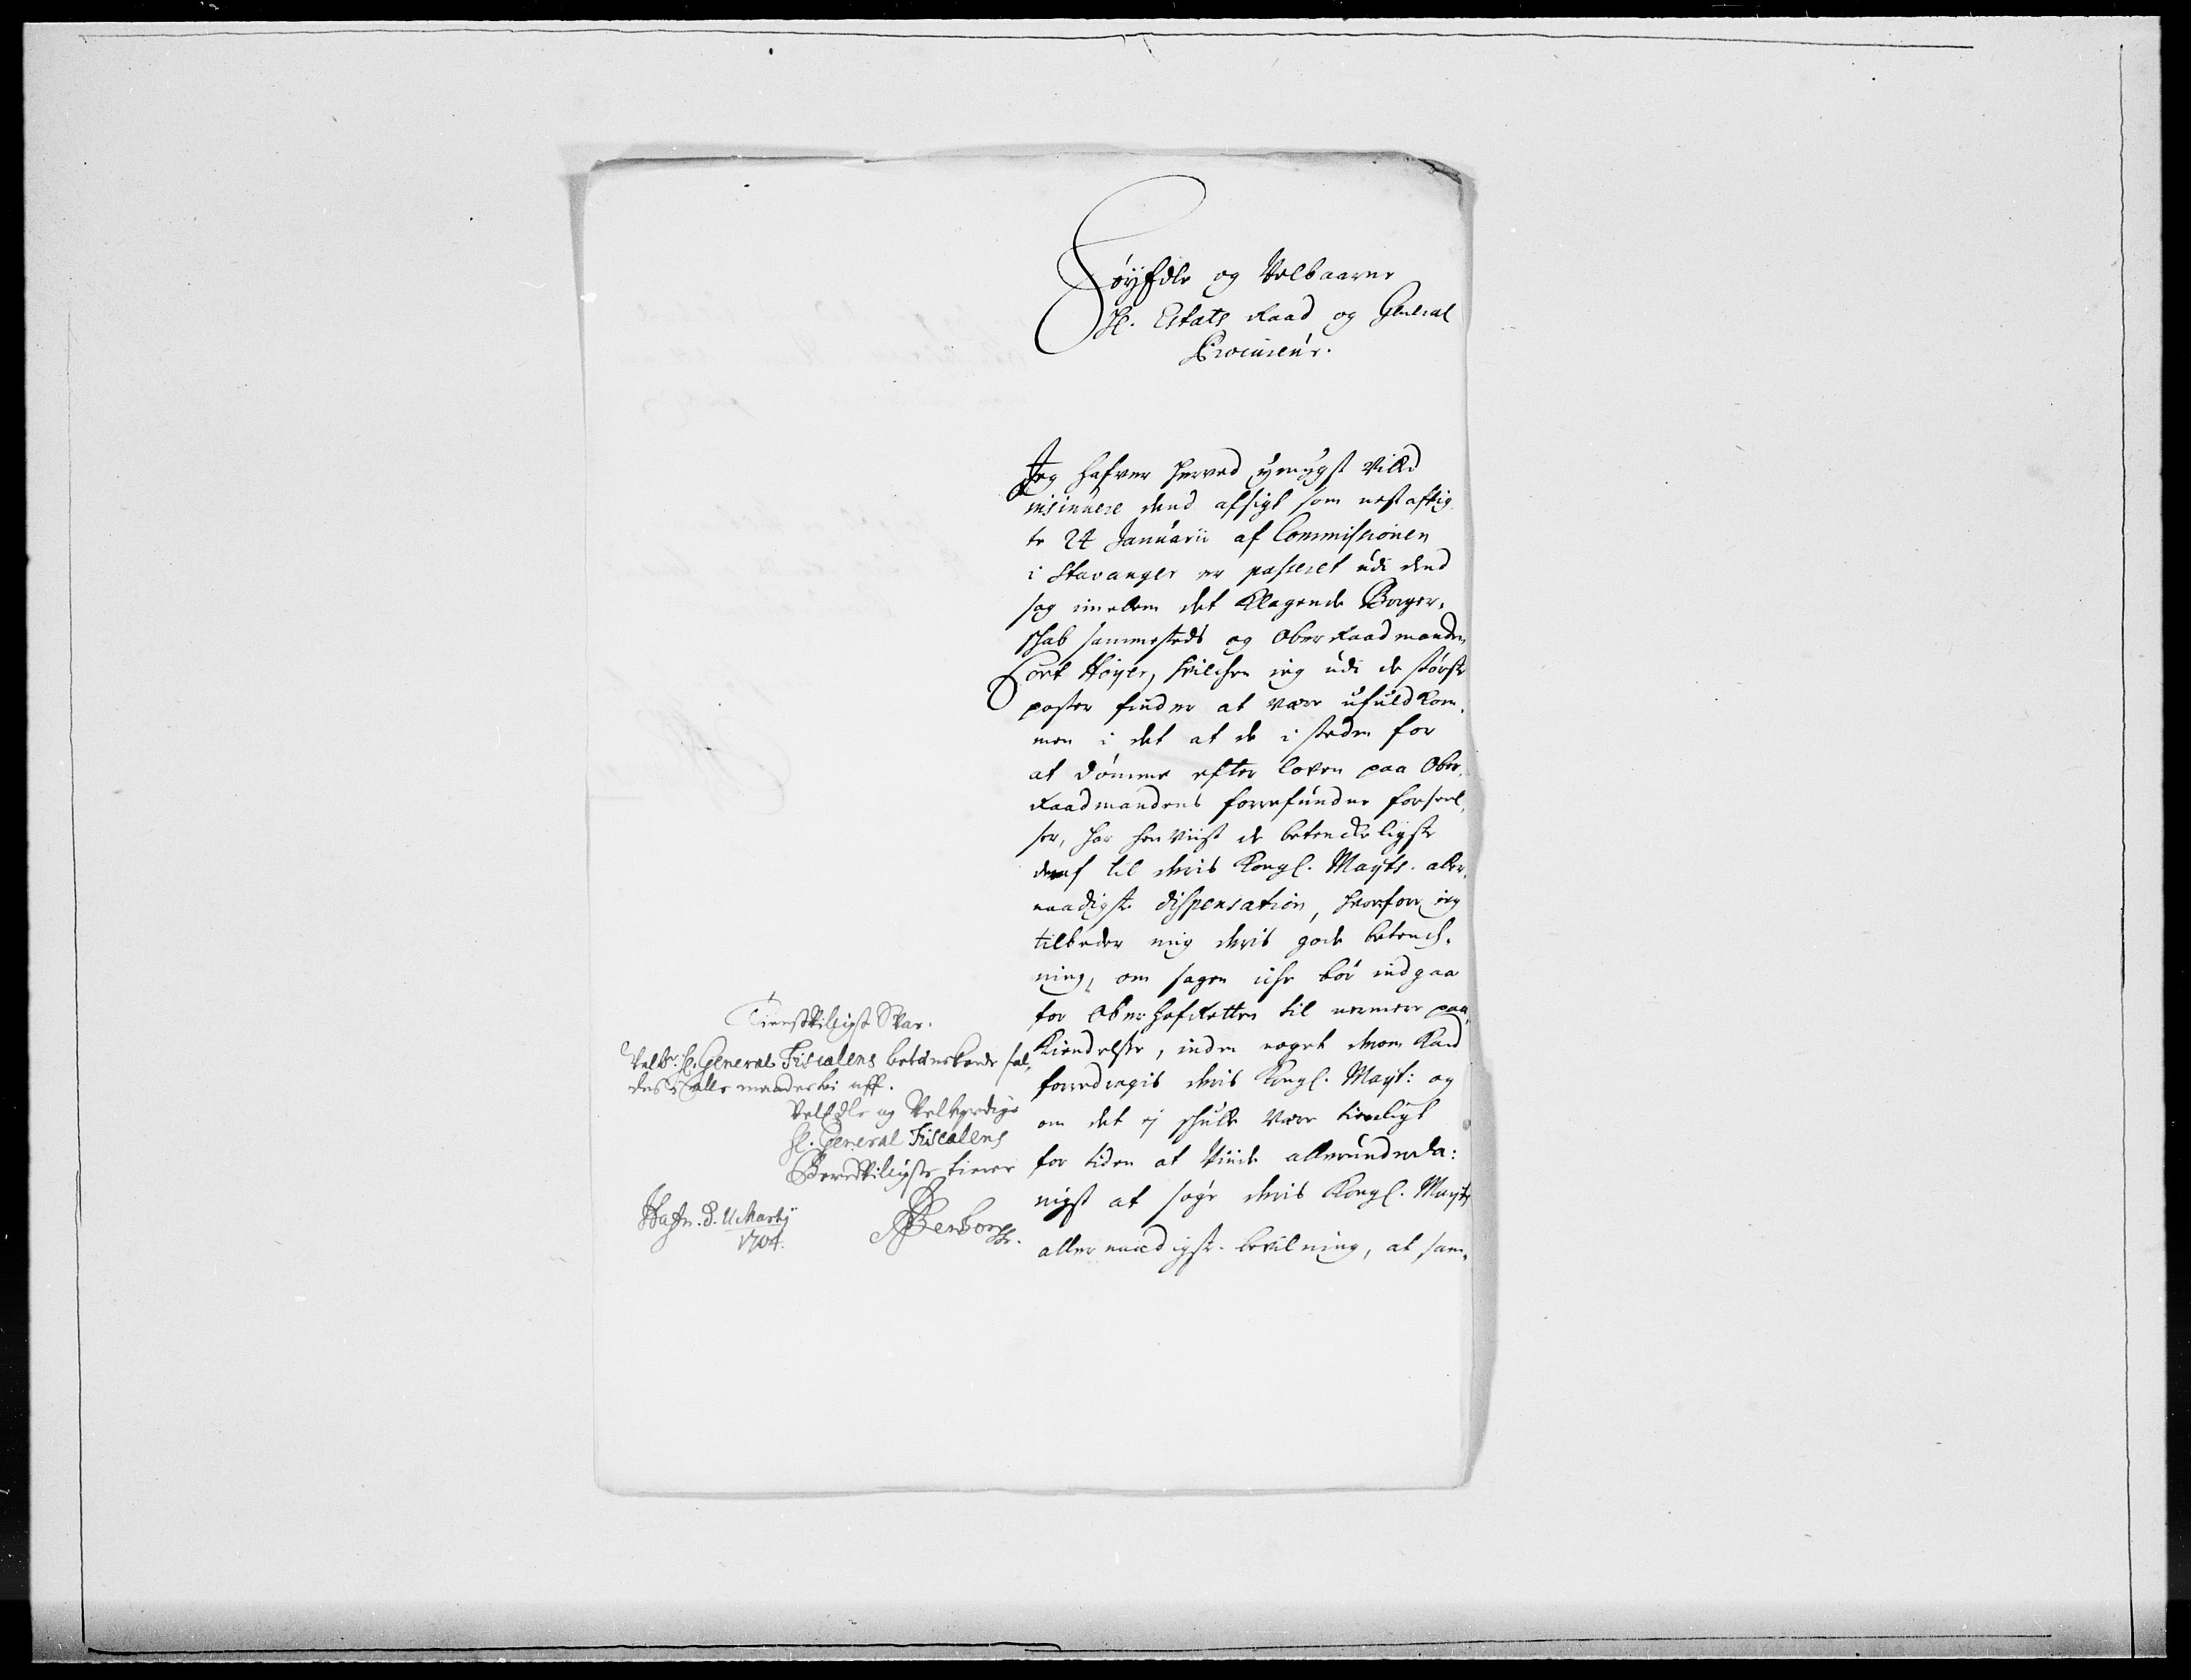 HøyEdle og Velbaarne
Hr. Etats Raad og General
Procureur.
Jeg hafver herved ydmygst villet
insinuere dend afsigt som nest afvig,
te 24 Januarii af Commissionen
i Stavanger er passeret udi dend
sag imellem det klagende Borger,
schab sammesteds og Ober Raadmanden
Cort Høyer, hvilchen ieg udi de største
poster finder at være ufuldkom,
men i det at de i steden for
at dømme efter loven paa Ober,
Raadmandens forrefundne forseel,
ser, har henviist de betenckeligste
deraf til deris Kongl. Mayts. aller,
naadigste dispensation, hvorfor ieg
tilbeder mig deris gode betench,
ning, om sagen iche bør indgaa
for OberHofRetten til nermere paa,
kiendelse, inden noget derom kand
forredragis deris Kongl. Mayt: og
om det ej schulle være tienligt
for tiden at allerunderda:
nigst at søge deris Kongl. Mayts
allernaadigste bevilning, at sam,
Tienstvilligst Svar.
Velbr. Hr. General Fiscalens betenckende fal,
des i alle maader bi aff.
VelEdle og Velbyrdige
Hr. General Fiscalens
Beredvilligste tiener
Hafn. d. 11 Marty
1704.